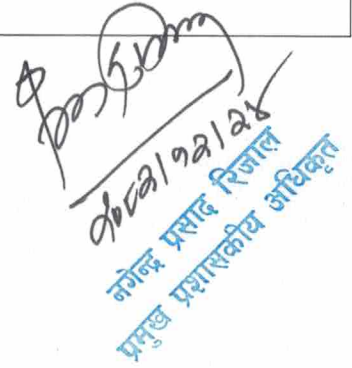 २०८२।१२।२४
नगेन्द्र प्रसाद रिजाल
प्रमुख प्रशासकीय अधिकृत